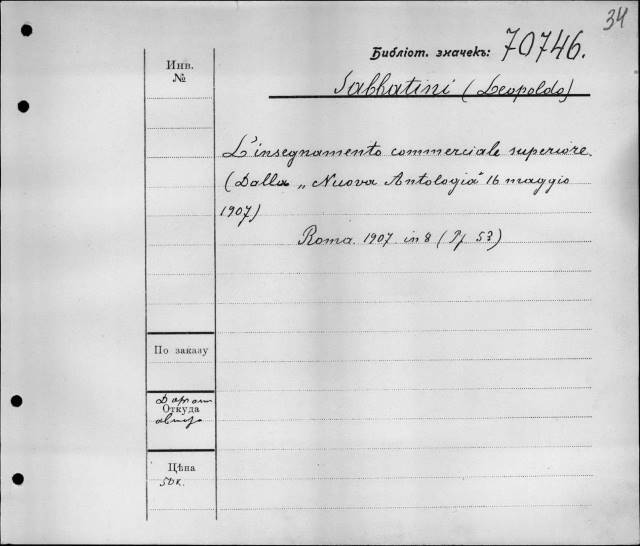 34
Библіот. значекъ: 70746.
Инв.
№
Sabbatini (Leopoldo)
L'insegnamento commerciale superiore.
(Dalla „Nuova Antologia" 16 maggio
1907)
Roma. 1907. in 8 (
По заказу
Откуда
Цѣна
50к.